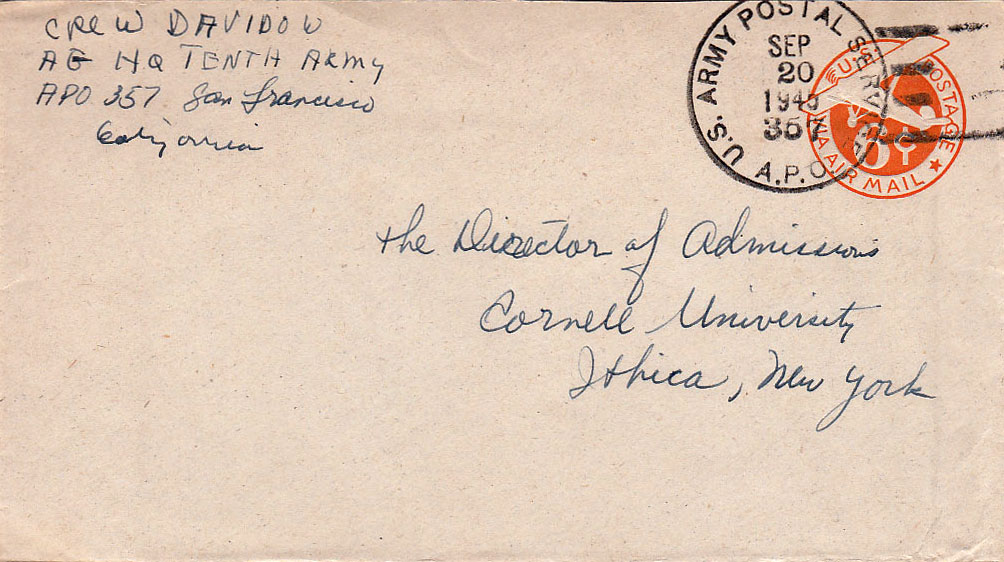 CREW DAVIDOW
AG HQ TENTH ARMY
APO 357 San Francisco
California
U.S. ARMY POSTAL SERVICE
SEP
20
1945
357
A.P.O.
U.S. POSTAGE
VIA AIR MAIL
6¢
the Director of Admissions
Cornell University
Ithica, New York